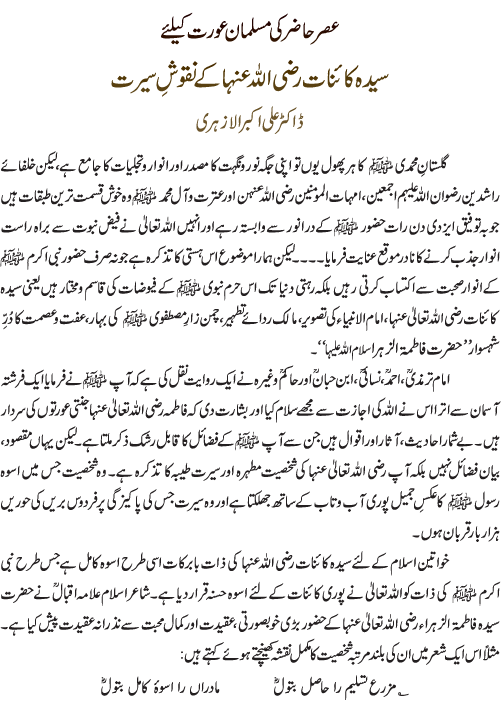 عصر حاضر کی مسلمان عورت کیلئے
سیدہ کائنات رضی اللہ عنہا کے نقوشِ سیرت
ڈاکٹر علی اکبر الازہری
گلستانِ محمدی ﷺ کا ہر پھول یوں تو اپنی جگہ نور و نگہت کا مصدر اور انوار و تجلیات کا جامع ہے، لیکن خلفائے
راشدین رضوان اللہ علیہم اجمعین، امہات المؤمنین رضی اللہ عنہن اور عترت و آل محمد ﷺ وہ خوش قسمت ترین طبقات ہیں
جو بہ توفیق ایزدی دن رات حضور ﷺ کے در انور سے وابستہ رہے اور انہیں اللہ تعالیٰ نے فیض نبوت سے براہ راست
انوار جذب کرنے کا نادر موقع عنایت فرمایا۔۔۔۔ لیکن ہمارا موضوع اس ہستی کا تذکرہ ہے جو نہ صرف حضور نبی اکرم ﷺ
کے انوار صحبت سے اکتساب کرتی رہیں بلکہ رہتی دنیا تک اس حرم نبوی ﷺ کے فیوضات کی قاسم و مختار ہیں یعنی سیدہ
کائنات رضی اللہ تعالیٰ عنہا، امام الانبیاء کی تصویر، مالک ردائے تطہیر، چمن زارِ مصطفوی ﷺ کی بہار، عفت و عصمت کا دُرِّ
شہسوار ’’حضرت فاطمۃ الزہرا سلام اللہ علیہا‘‘۔
امام ترمذیؒ، احمدؒ، نسائیؒ، ابن حبانؒ اور حاکمؒ وغیرہ نے ایک روایت نقل کی ہے کہ آپ ﷺ نے فرمایا ایک فرشتہ
آسمان سے اترا اس نے اللہ کی اجازت سے مجھے سلام کیا اور بشارت دی کہ فاطمہ رضی اللہ تعالیٰ عنہا جنتی عورتوں کی سردار
ہیں۔ بے شمار احادیث، آثار اور اقوال ہیں جن سے آپ ﷺ کے فضائل کا قابل رشک ذکر ملتا ہے۔ لیکن یہاں مقصود،
بیان فضائل نہیں بلکہ آپ رضی اللہ تعالیٰ عنہا کی شخصیت مطہرہ اور سیرت طیبہ کا تذکرہ ہے۔ وہ شخصیت جس میں اسوہ
رسول ﷺ کا عکسِ جمیل پوری آب و تاب کے ساتھ جھلکتا ہے اور وہ سیرت جس کی پاکیزگی پر فردوس بریں کی حوریں
ہزار بار قربان ہوں۔
خواتین اسلام کے لئے سیدہ کائنات رضی اللہ عنہا کی ذات بابرکات اسی طرح اسوہ کامل ہے جس طرح نبی
اکرم ﷺ کی ذات کو اللہ تعالیٰ نے پوری کائنات کے لئے اسوہ حسنہ قرار دیا ہے۔ شاعر اسلام علامہ اقبالؒ نے حضرت
سیدہ فاطمۃ الزہراء رضی اللہ تعالیٰ عنہا کے حضور بڑی خوبصورتی، عقیدت اور کمال محبت سے نذرانہ عقیدت پیش کیا ہے۔
مثلاً اس ایک شعر میں ان کی بلند مرتبہ شخصیت کا مکمل نقشہ کھینچتے ہوئے کہتے ہیں:
؎ مزرع تسلیم را حاصل بتولؓ مادراں را اسوۂ کامل بتولؓ